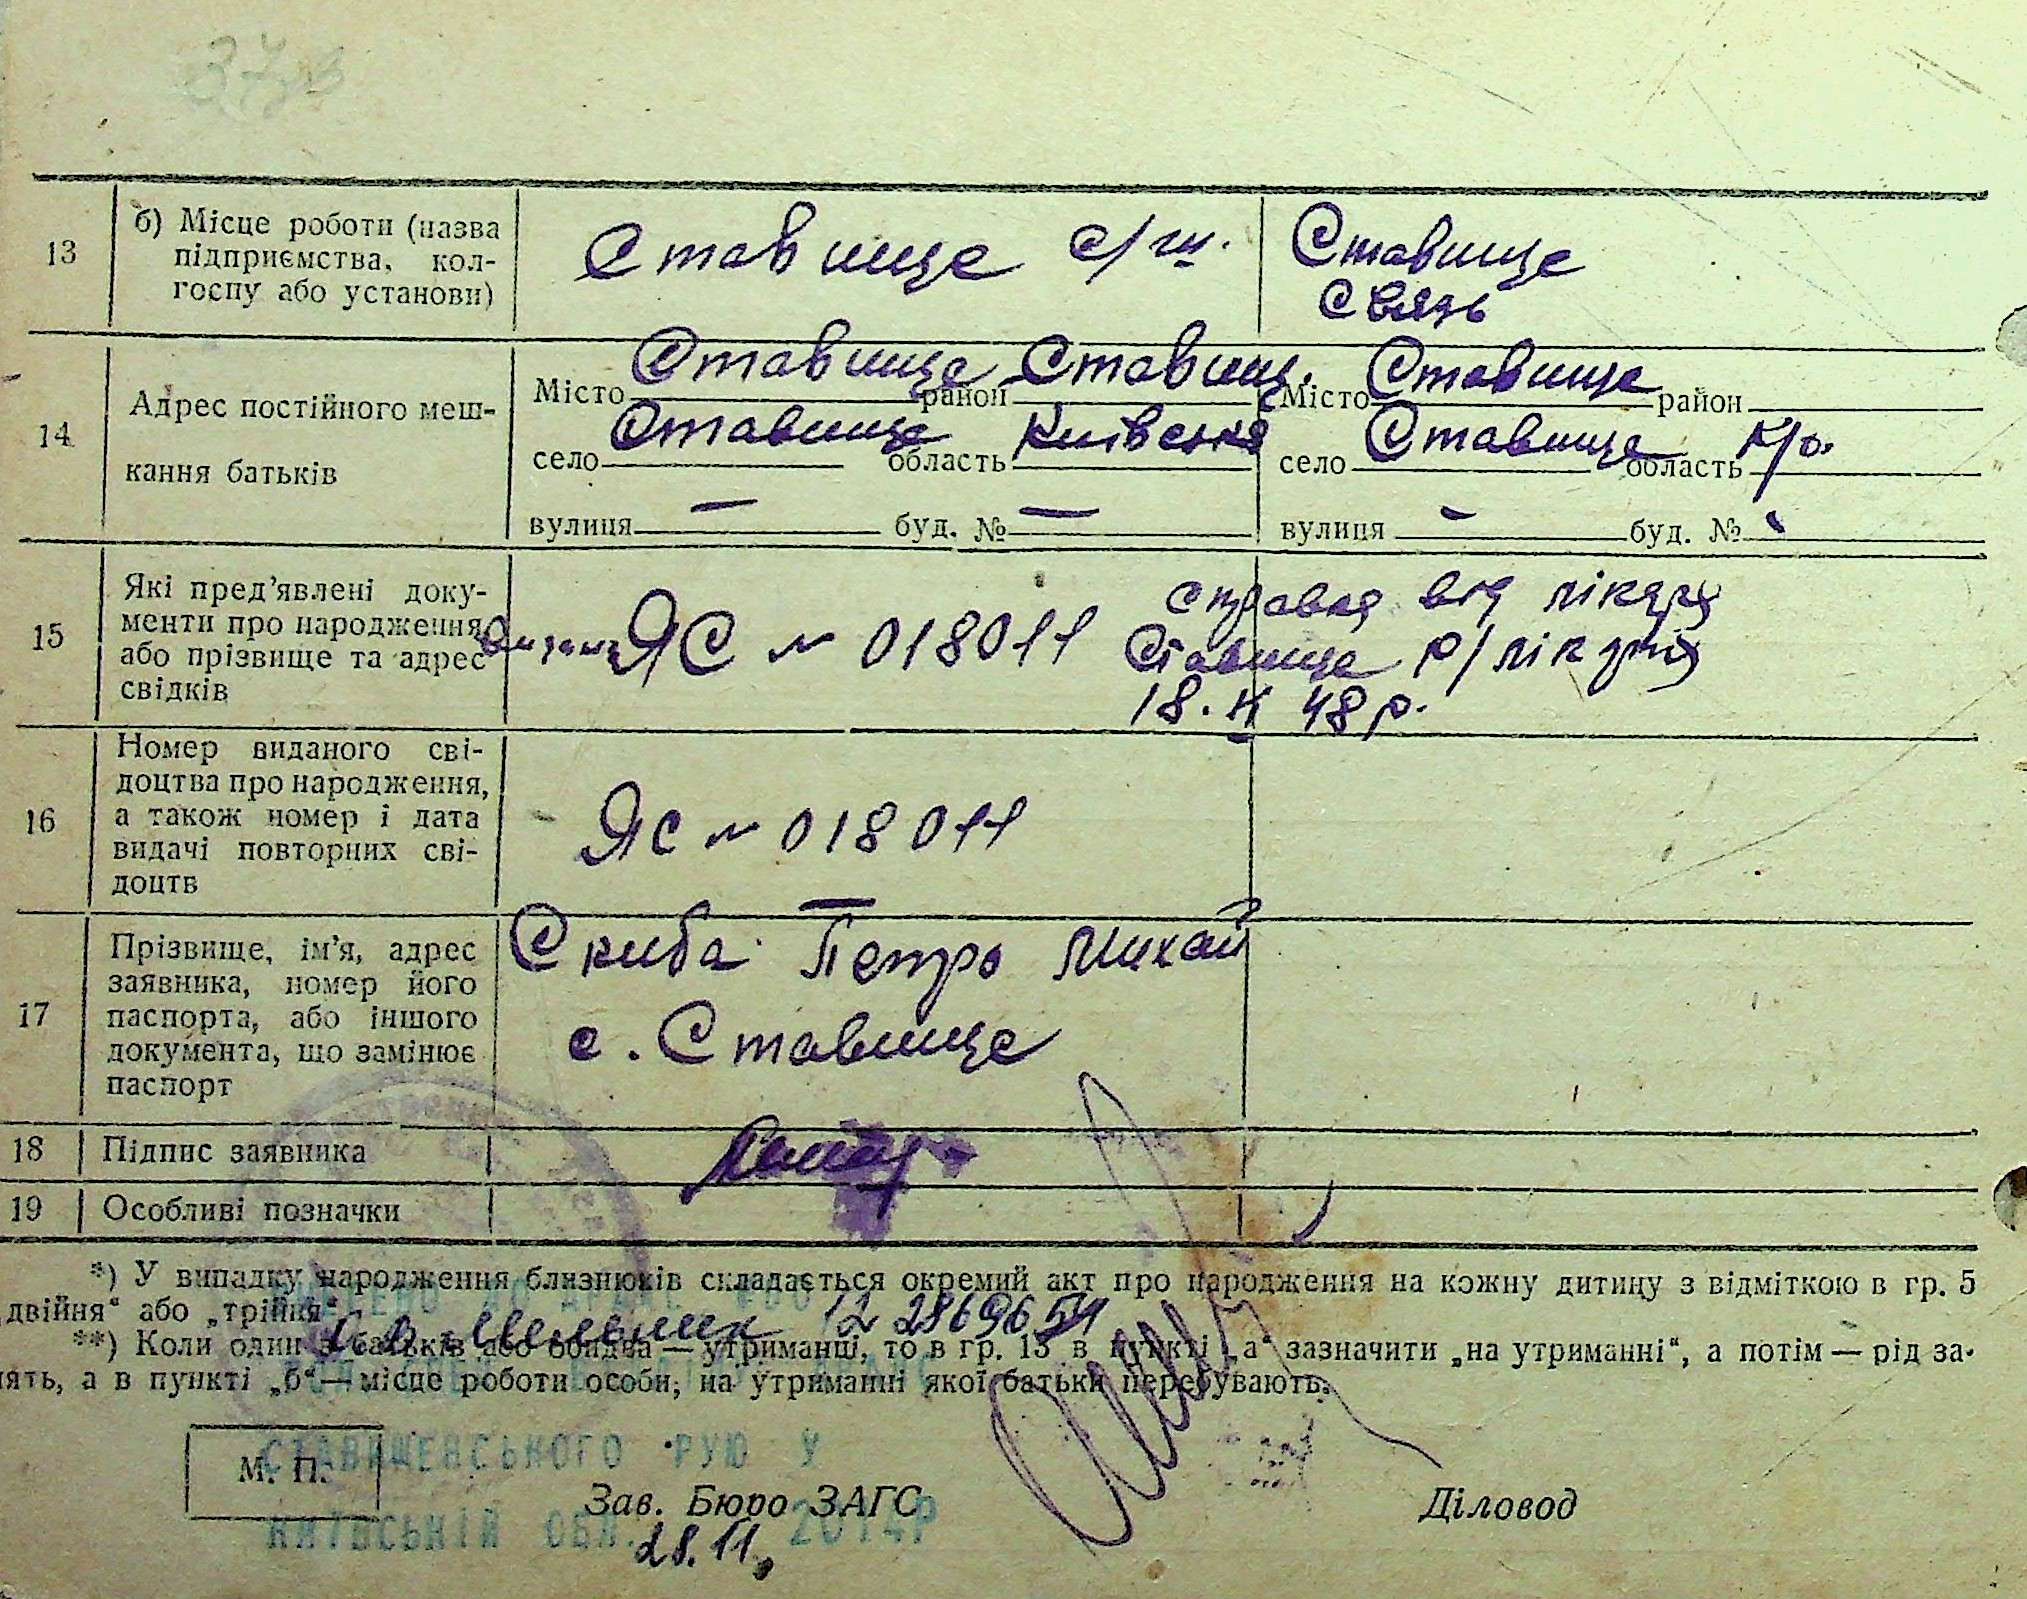 13
б) Місце роботи (назва
підприємства, кол-
госпу або установи)
Ставище с/ш.
Ставище
Связь
14
Адрес постійного меш-
кання батьків
Місто Ставище район Ставищ.
село Ставище область Київська
вулиця — буд. № —
Місто Ставище район
село Ставище область К/о.
вулиця - буд. № -
15
Які пред'явлені доку-
менти про народження
або прізвище та адрес
свідків
ЯС № 018011
справка від лікаря
Ставище р/лікарня
18. 48 р.
16
Номер виданого сві-
доцтва про народження,
а також номер і дата
видачі повторних сві-
доцтв
ЯС № 018011
—
17
Прізвище, ім'я, адрес
заявника, номер його
паспорта, або іншого
документа, що замінює
паспорт
Скиба Петро Михай
с. Ставище
18
Підпис заявника
19
Особливі позначки
*) У випадку народження близнюків складається окремий акт про народження на кожну дитину з відміткою в гр. 5
„двійня“ або „трійня“
**) Коли один з батьків або обидва — утриманці, то в гр. 13 в пункті „а“ зазначити „на утриманні“, а потім — рід за-
нять, а в пункті „б“ — місце роботи особи, на утриманні якої батьки перебувають.
М. П.
СТАВИЩЕНСЬКОГО РУЮ У
Зав. Бюро ЗАГС
Діловод
КИЇВСЬКІЙ ОБЛ. 2014Р
28.11.